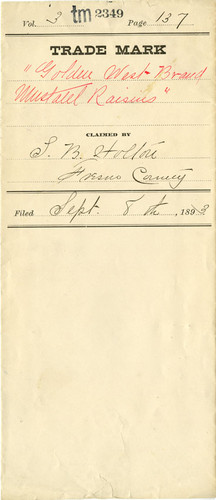 Vol. 3 tm 2349 Page 137
TRADE MARK
"Golden West Brand
Muscatel Raisins"
CLAIMED BY
S. B. Holton
Fresno County
Filed Sept. 8th, 1893